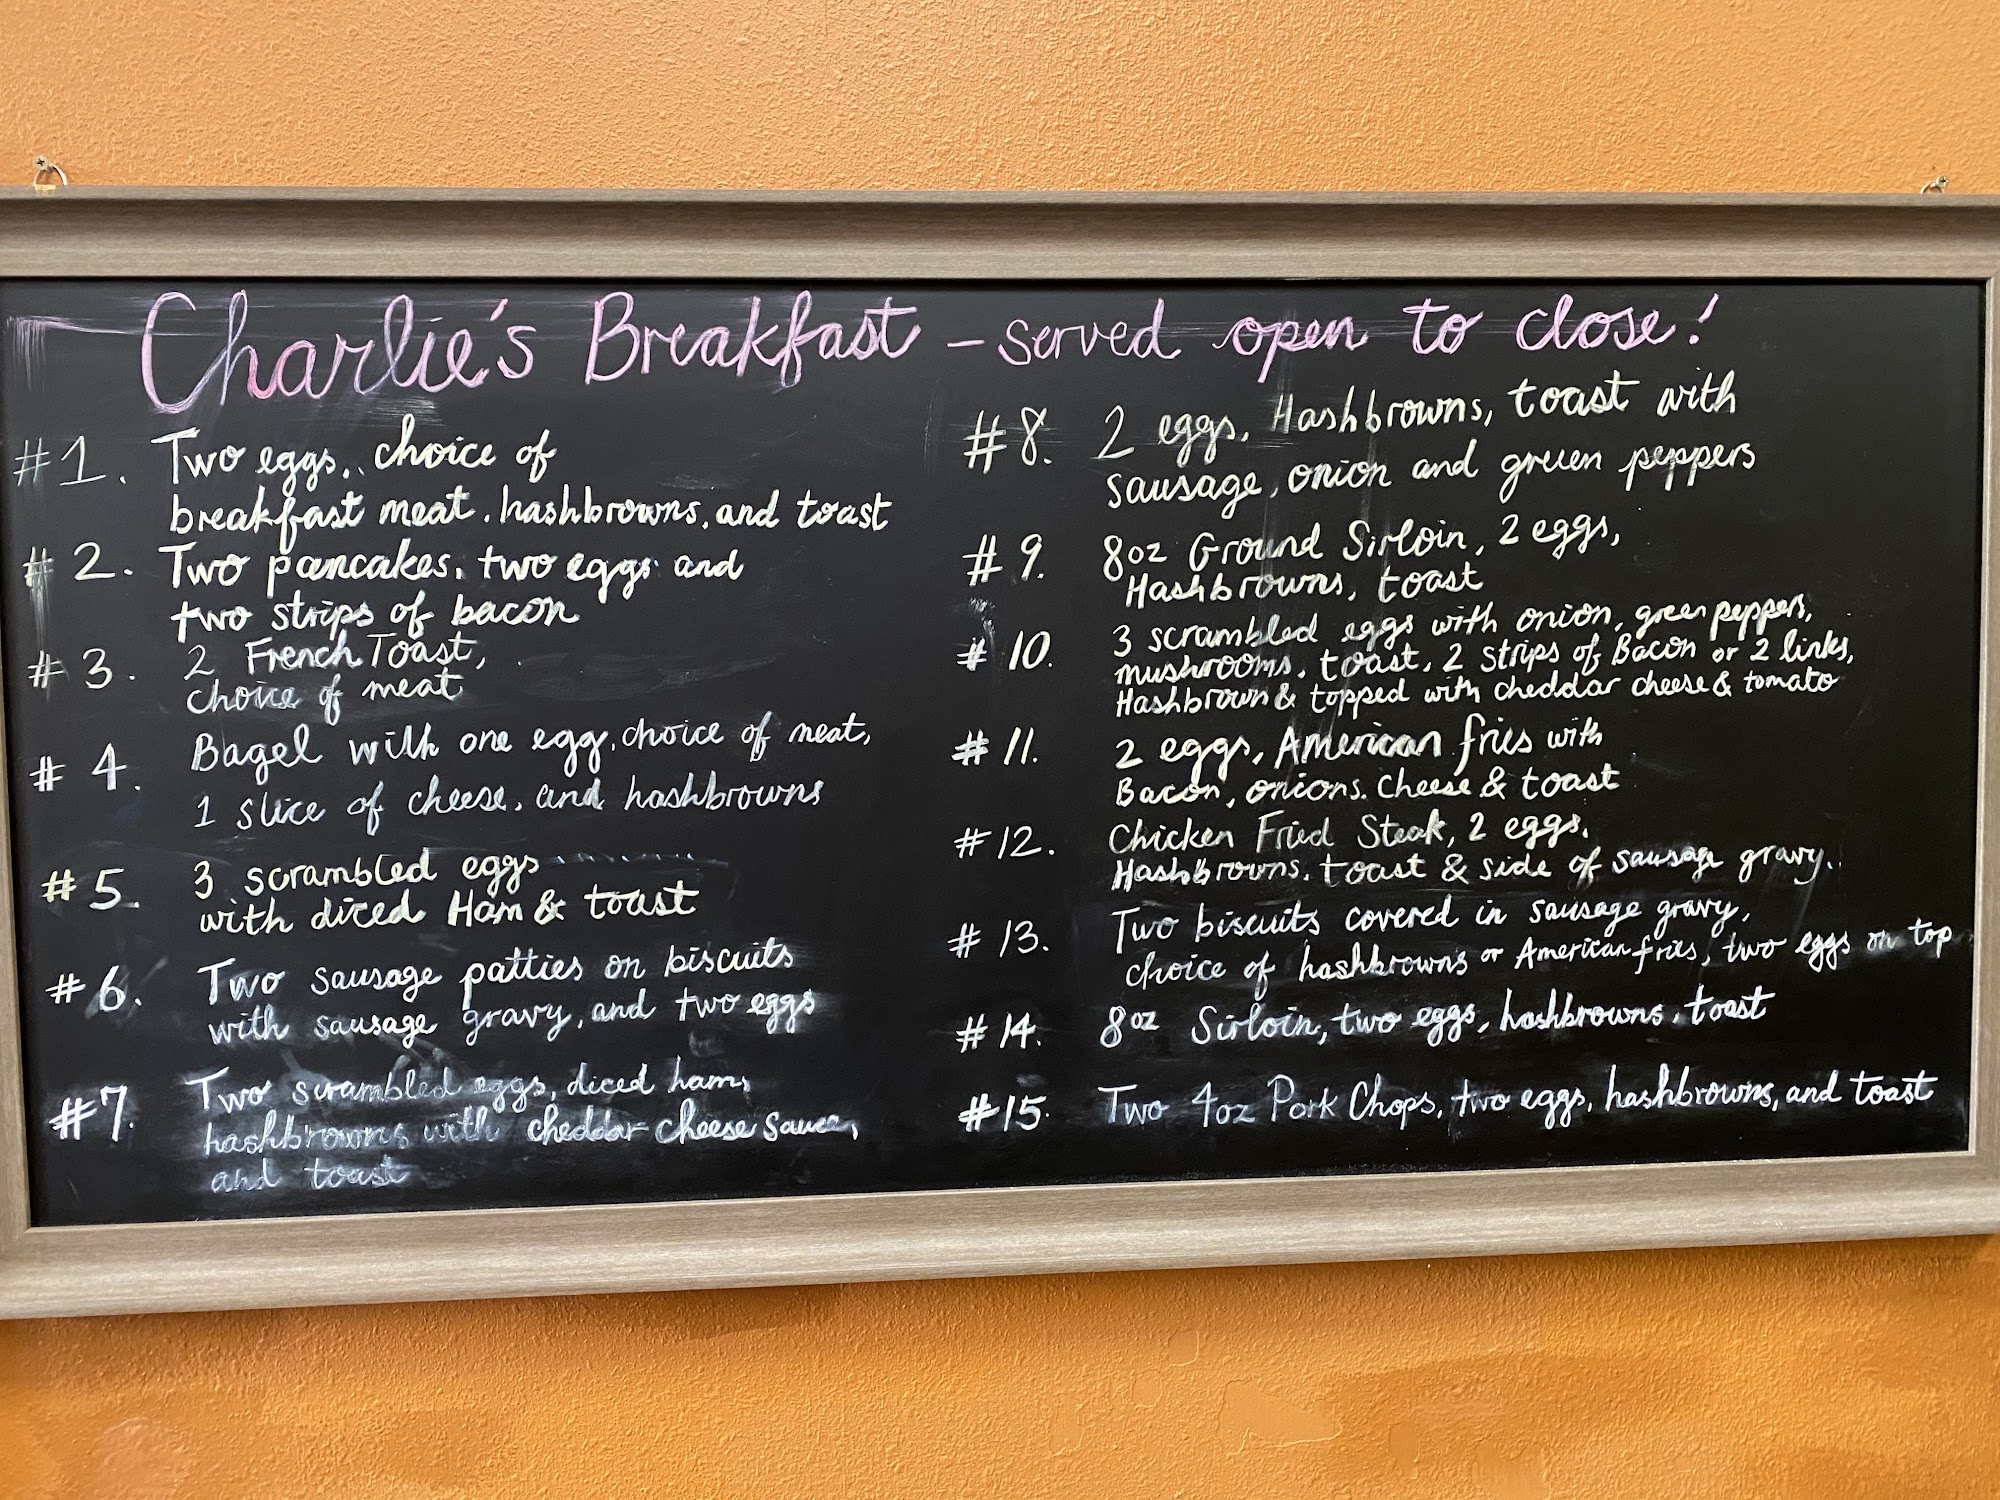 Charlie's Breakfast - served open to close!
#1. Two eggs, choice of
breakfast meat, hashbrowns, and toast
#2. Two pancakes, two eggs and
two strips of bacon
#3. 2 French Toast,
choice of meat
#4. Bagel with one egg, choice of meat,
1 slice of cheese, and hashbrowns
#5. 3 scrambled eggs
with diced Ham & toast
#6. Two sausage patties on biscuits
with sausage gravy, and two eggs
#7. Two scrambled eggs, diced ham,
hashbrowns with cheddar cheese sauce,
and toast
#8. 2 eggs, Hashbrowns, toast with
sausage, onion and green peppers
#9. 8oz Ground Sirloin, 2 eggs,
Hashbrowns, toast
#10. 3 scrambled eggs with onion, green peppers,
mushrooms, toast, 2 strips of Bacon or 2 links,
Hashbrown & topped with cheddar cheese & tomato
#11. 2 eggs, American fries with
Bacon, onions, cheese & toast
#12. Chicken Fried Steak, 2 eggs,
Hashbrowns, toast & side of sausage gravy.
#13. Two biscuits covered in sausage gravy,
choice of hashbrowns or American fries, two eggs on top
#14. 8oz Sirloin, two eggs, hashbrowns, toast
#15 Two 4oz Pork Chops, two eggs, hashbrowns, and toast